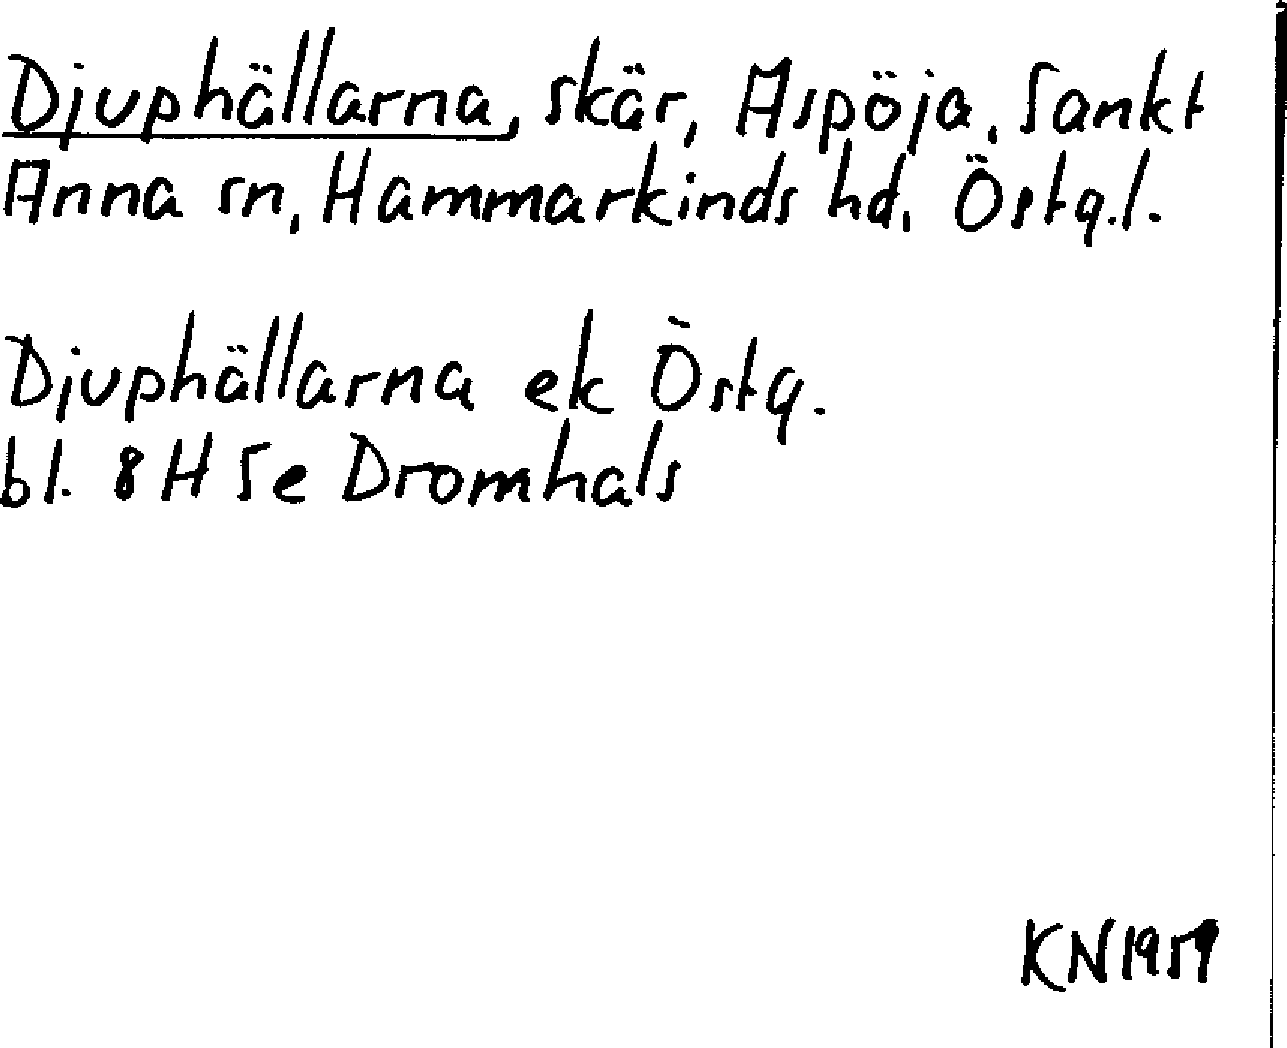 Djuphällarna, skär, Aspöja, Sankt
Anna sn, Hammarkinds hd, Östg.l.
Djuphällarna ek Östg.
bl. 8H 5e Dromhals
KN 1959